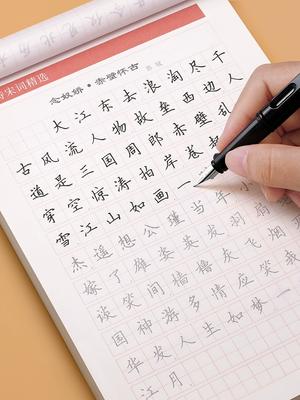 宋词精选
念奴娇·赤壁怀古 苏轼
大江东去浪淘尽千
古风流人物故垒西边人
道是三国周郎赤壁乱
穿空惊涛拍岸卷
雪江山如画一
杰遥想公瑾当年小
嫁了雄姿英发羽扇
谈笑间樯橹灰飞烟
国神游多情应笑我
华发人生如梦一
江月